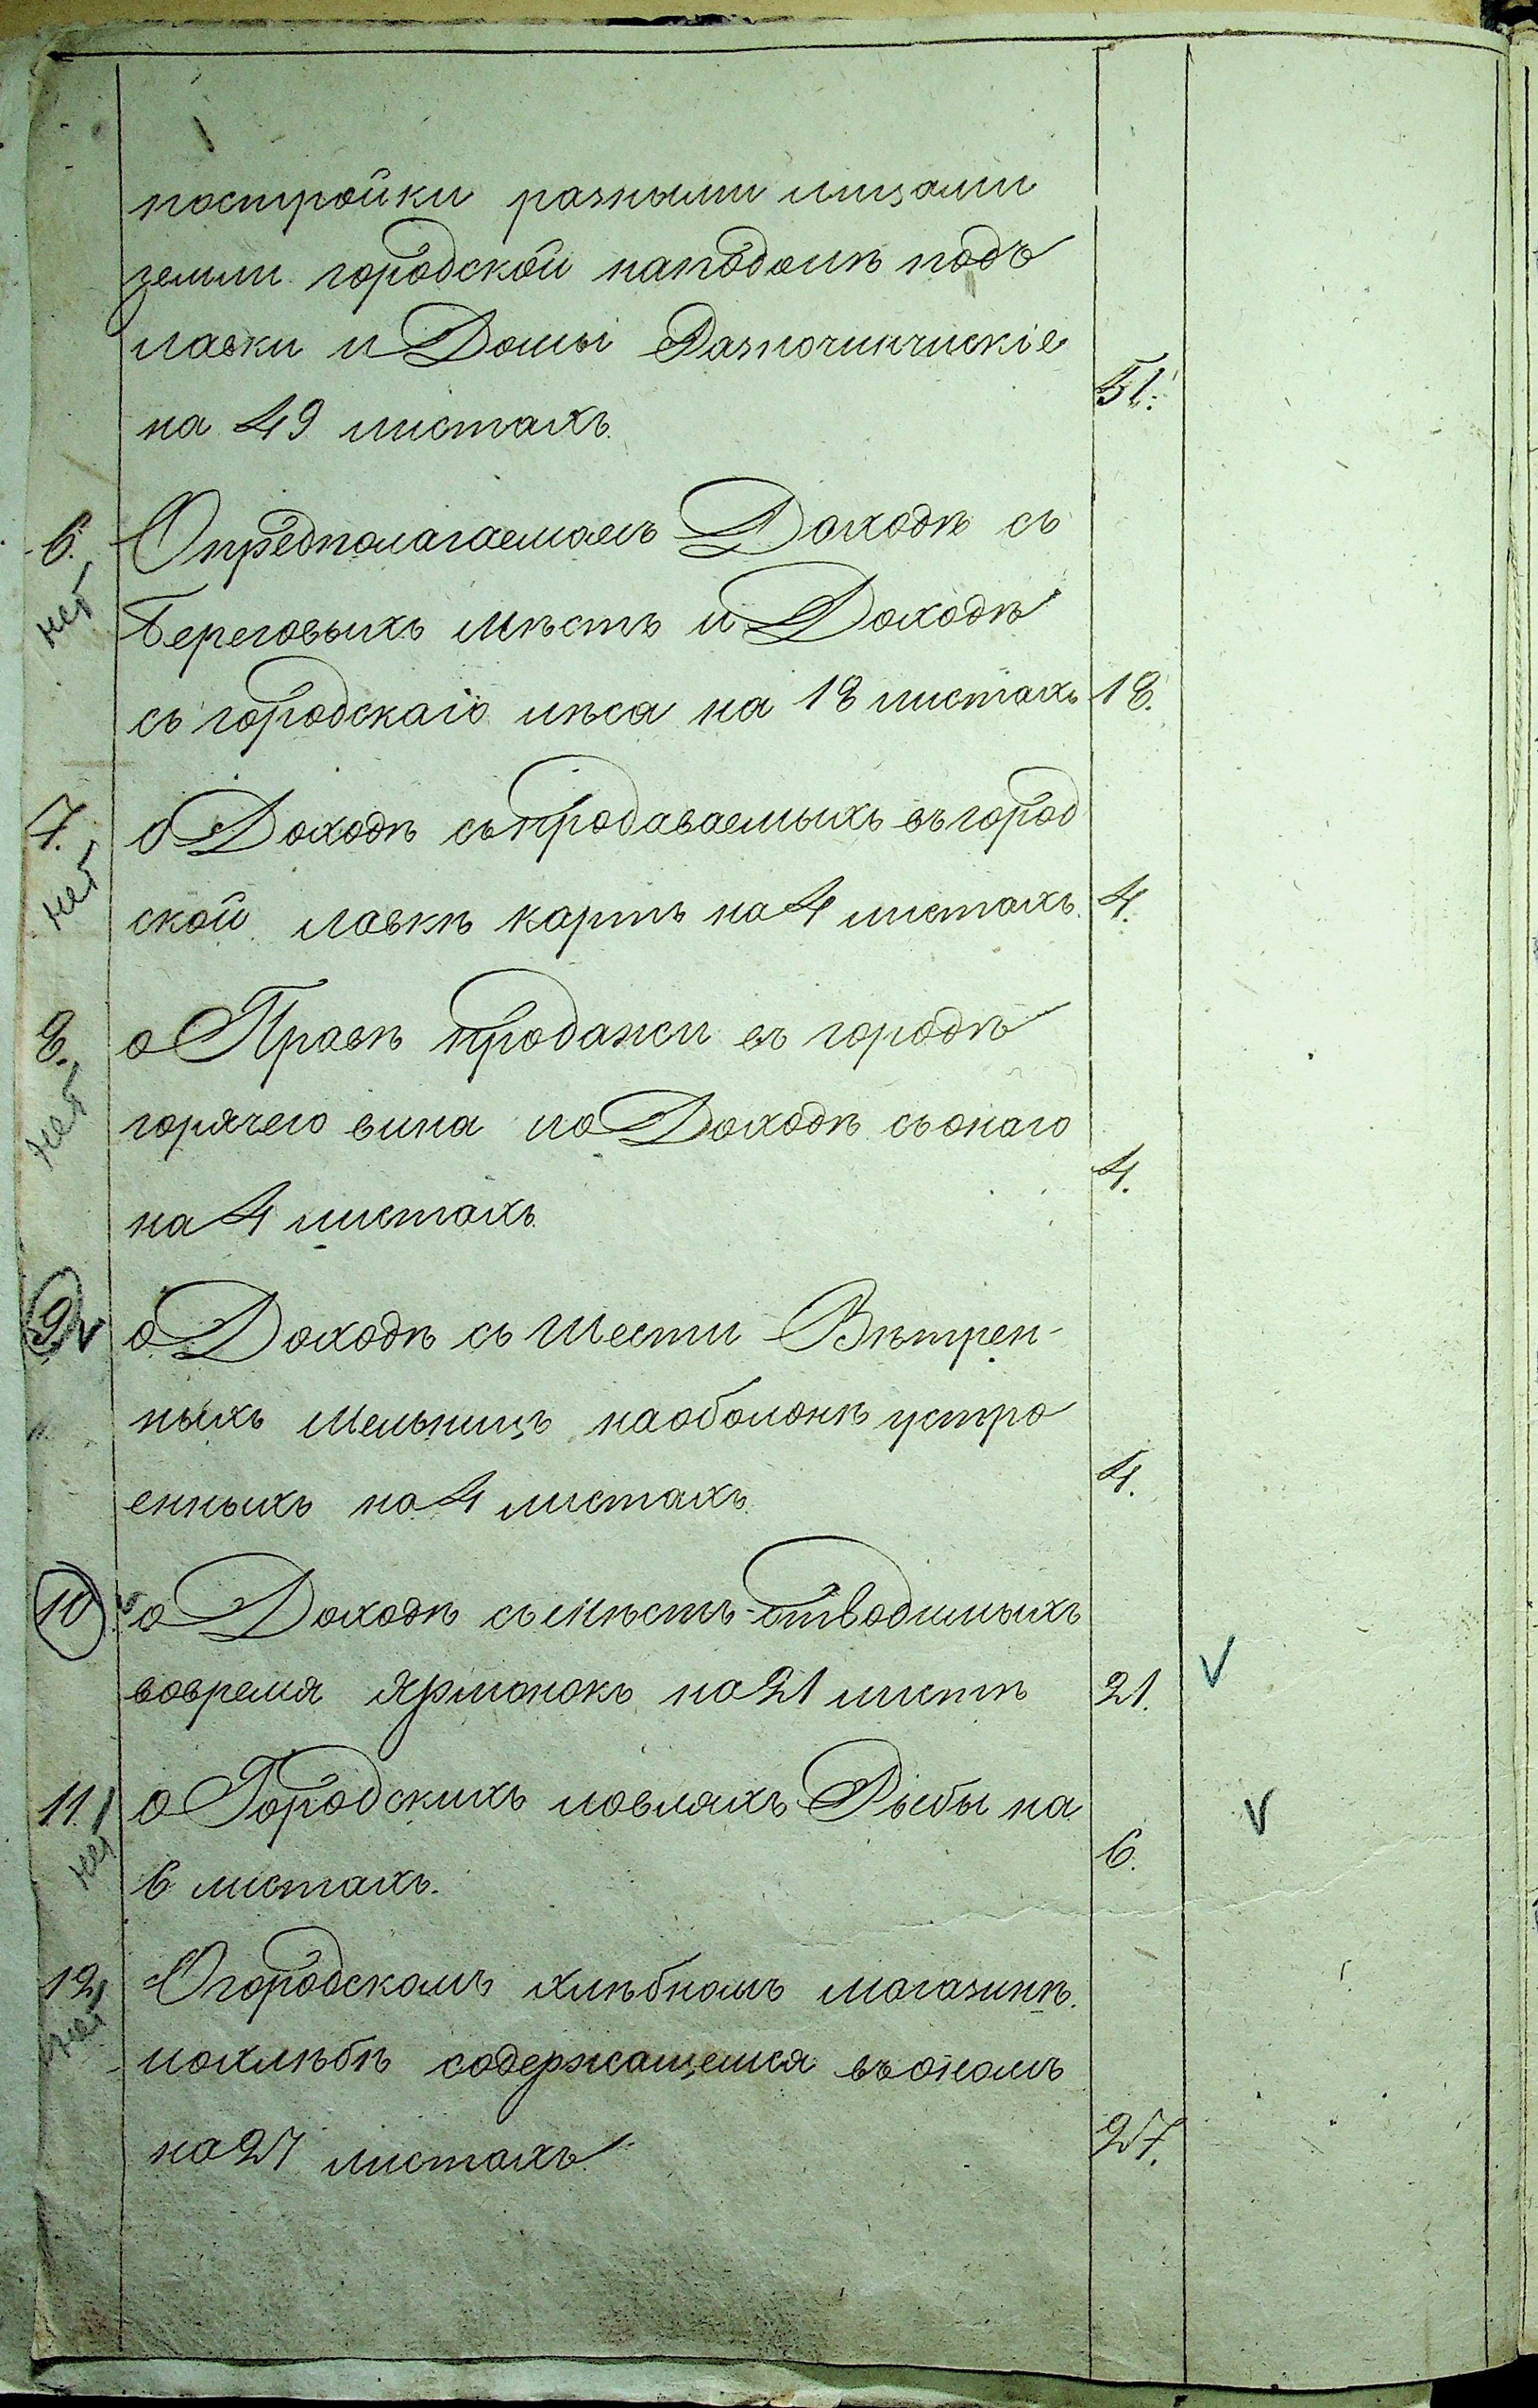 постройки разными лицами
земли городской наподолѣ подъ
лавки и Домы Разночинчискіе
на 49 листахъ. 51.
6. Опредполагаемомъ Доходѣ съ
нет
Береговыхъ мѣстъ и Доходѣ
съ городскаго лѣса на 18 листахъ 18.
7. о Доходѣ съ продаваемыхъ въ город
нет
ской лавкѣ картъ на 4 листахъ. 4.
8. о Правѣ продажи въ городѣ
нет
горячего вина и о Доходѣ съ онаго
на 4 листахъ 4.
9 v о Доходѣ съ шести Вѣтрен-
ныхъ мельницъ на оболонѣ устро
енныхъ на 4 листахъ. 4.
10 v о Доходѣ съ мѣстъ отводимыхъ
вовремя ярмонокъ на 21 листѣ 21. v
11. о Городскихъ ловляхъ Рыбы на v
нет
6 листахъ. 6.
12. О городскомъ хлѣбномъ магазинѣ.
нет
и о хлѣбѣ содержащемся въ ономъ
на 27 листахъ. 27.